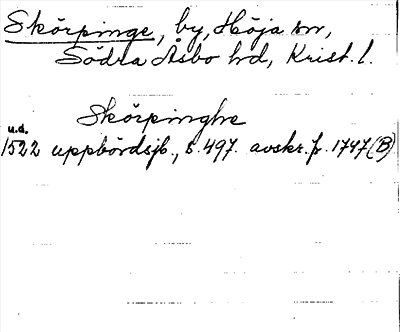 Skörpinge, by, Höja sn,
Södra Åsbo hd, Krist. l.
Skörpinghe
u.d.
1522 uppbördsjb., s. 497. avskr. fr. 1747 (B)